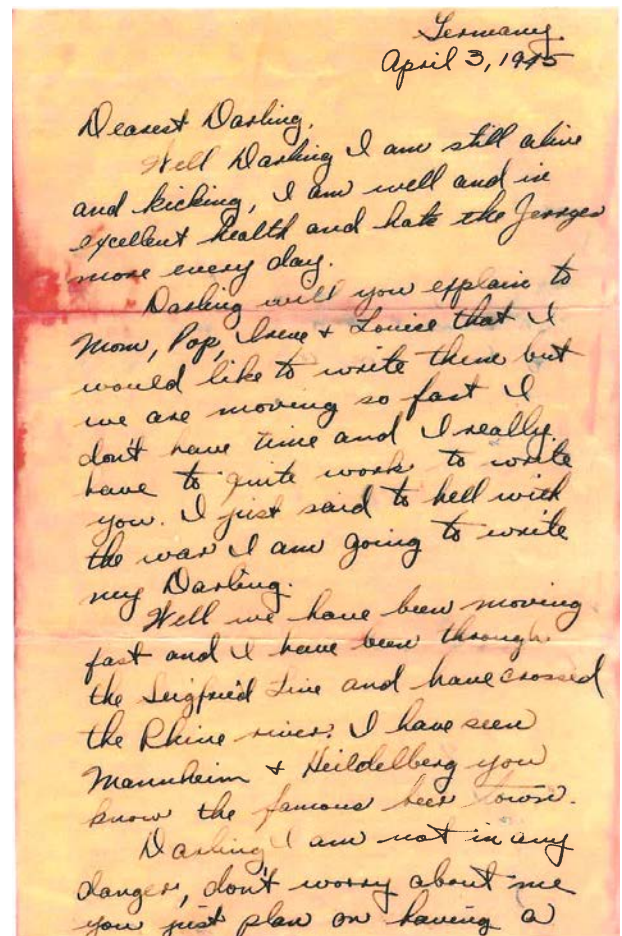 Germany.
April 3, 1945
Dearest Darling,
Well Darling I am still alive
and kicking, I am well and in
excellent health and hate the Jerrys
more every day.
Darling will you explain to
Mom, Pop, Irene & Louise that I
would like to write them but
we are moving so fast I
don't have time and I really
have to quite work to write
you. I just said to hell with
the war I am going to write
my Darling.
Well we have been moving
fast and I have been through
the Seigfried Line and have crossed
the Rhine river. I have seen
Mannheim & Heildelberg you
know the famous beer town.
Darling I am not in any
danger, don't worry about me
you just plan on having a